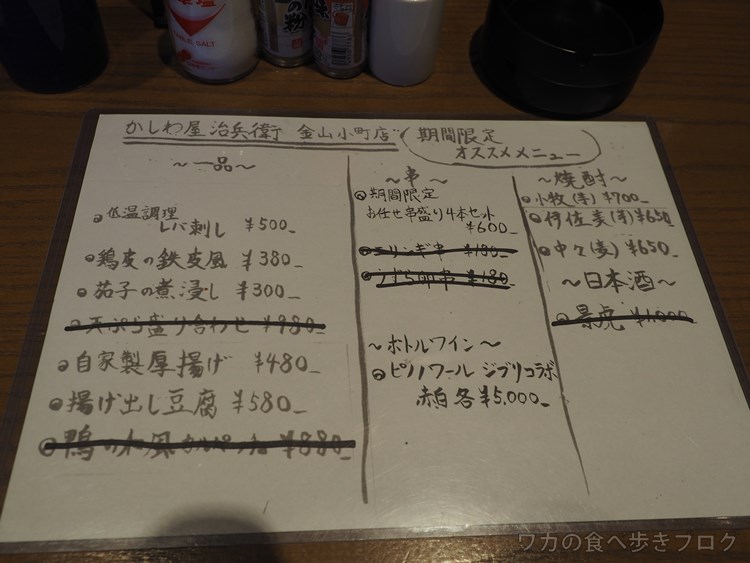 かしわ屋 治兵衛 金山小町店
期間限定
オススメメニュー
～一品～
低温調理
レバ刺し ¥500_
鶏皮の鉄皮風 ¥380_
茄子の煮浸し ¥300_
天ぷら盛り合わせ ¥980_
自家製厚揚げ ¥480_
揚げ出し豆腐 ¥580_
鴨の和風カルパッチョ ¥880_
～串～
期間限定
お任せ串盛り4本セット
¥600_
エリンギ串 ¥180_
うずら卵串 ¥180_
～ボトルワイン～
ピノノワール ジブリコラボ
赤白各¥5,000_
～焼酎～
小牧(芋)¥700_
伊佐美(芋)¥650
中々(麦)¥650_
～日本酒～
景虎 ¥1,000_
ワカの食べ歩きブログ